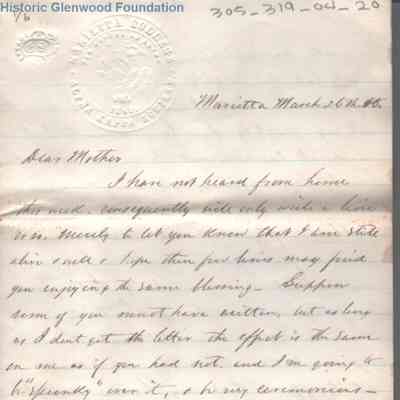 Historic Glenwood Foundation
1/6
305-319-04-20
MARIETTA COLLEGE
ALPHA KAPPA SOCIETY
Marietta March 26th
Dear Mother
I have not heard from home
this week, consequently will only write a line
or so. Merely to let you know that I am still
alive & well & hope these few lines may find
you enjoying the same blessing – Suppose
some of you must have written, but as long
as I dont get the letter the effect is the same
on me as if you had not, and I'm going to
be "spunky" over it, & be very ceremonious –